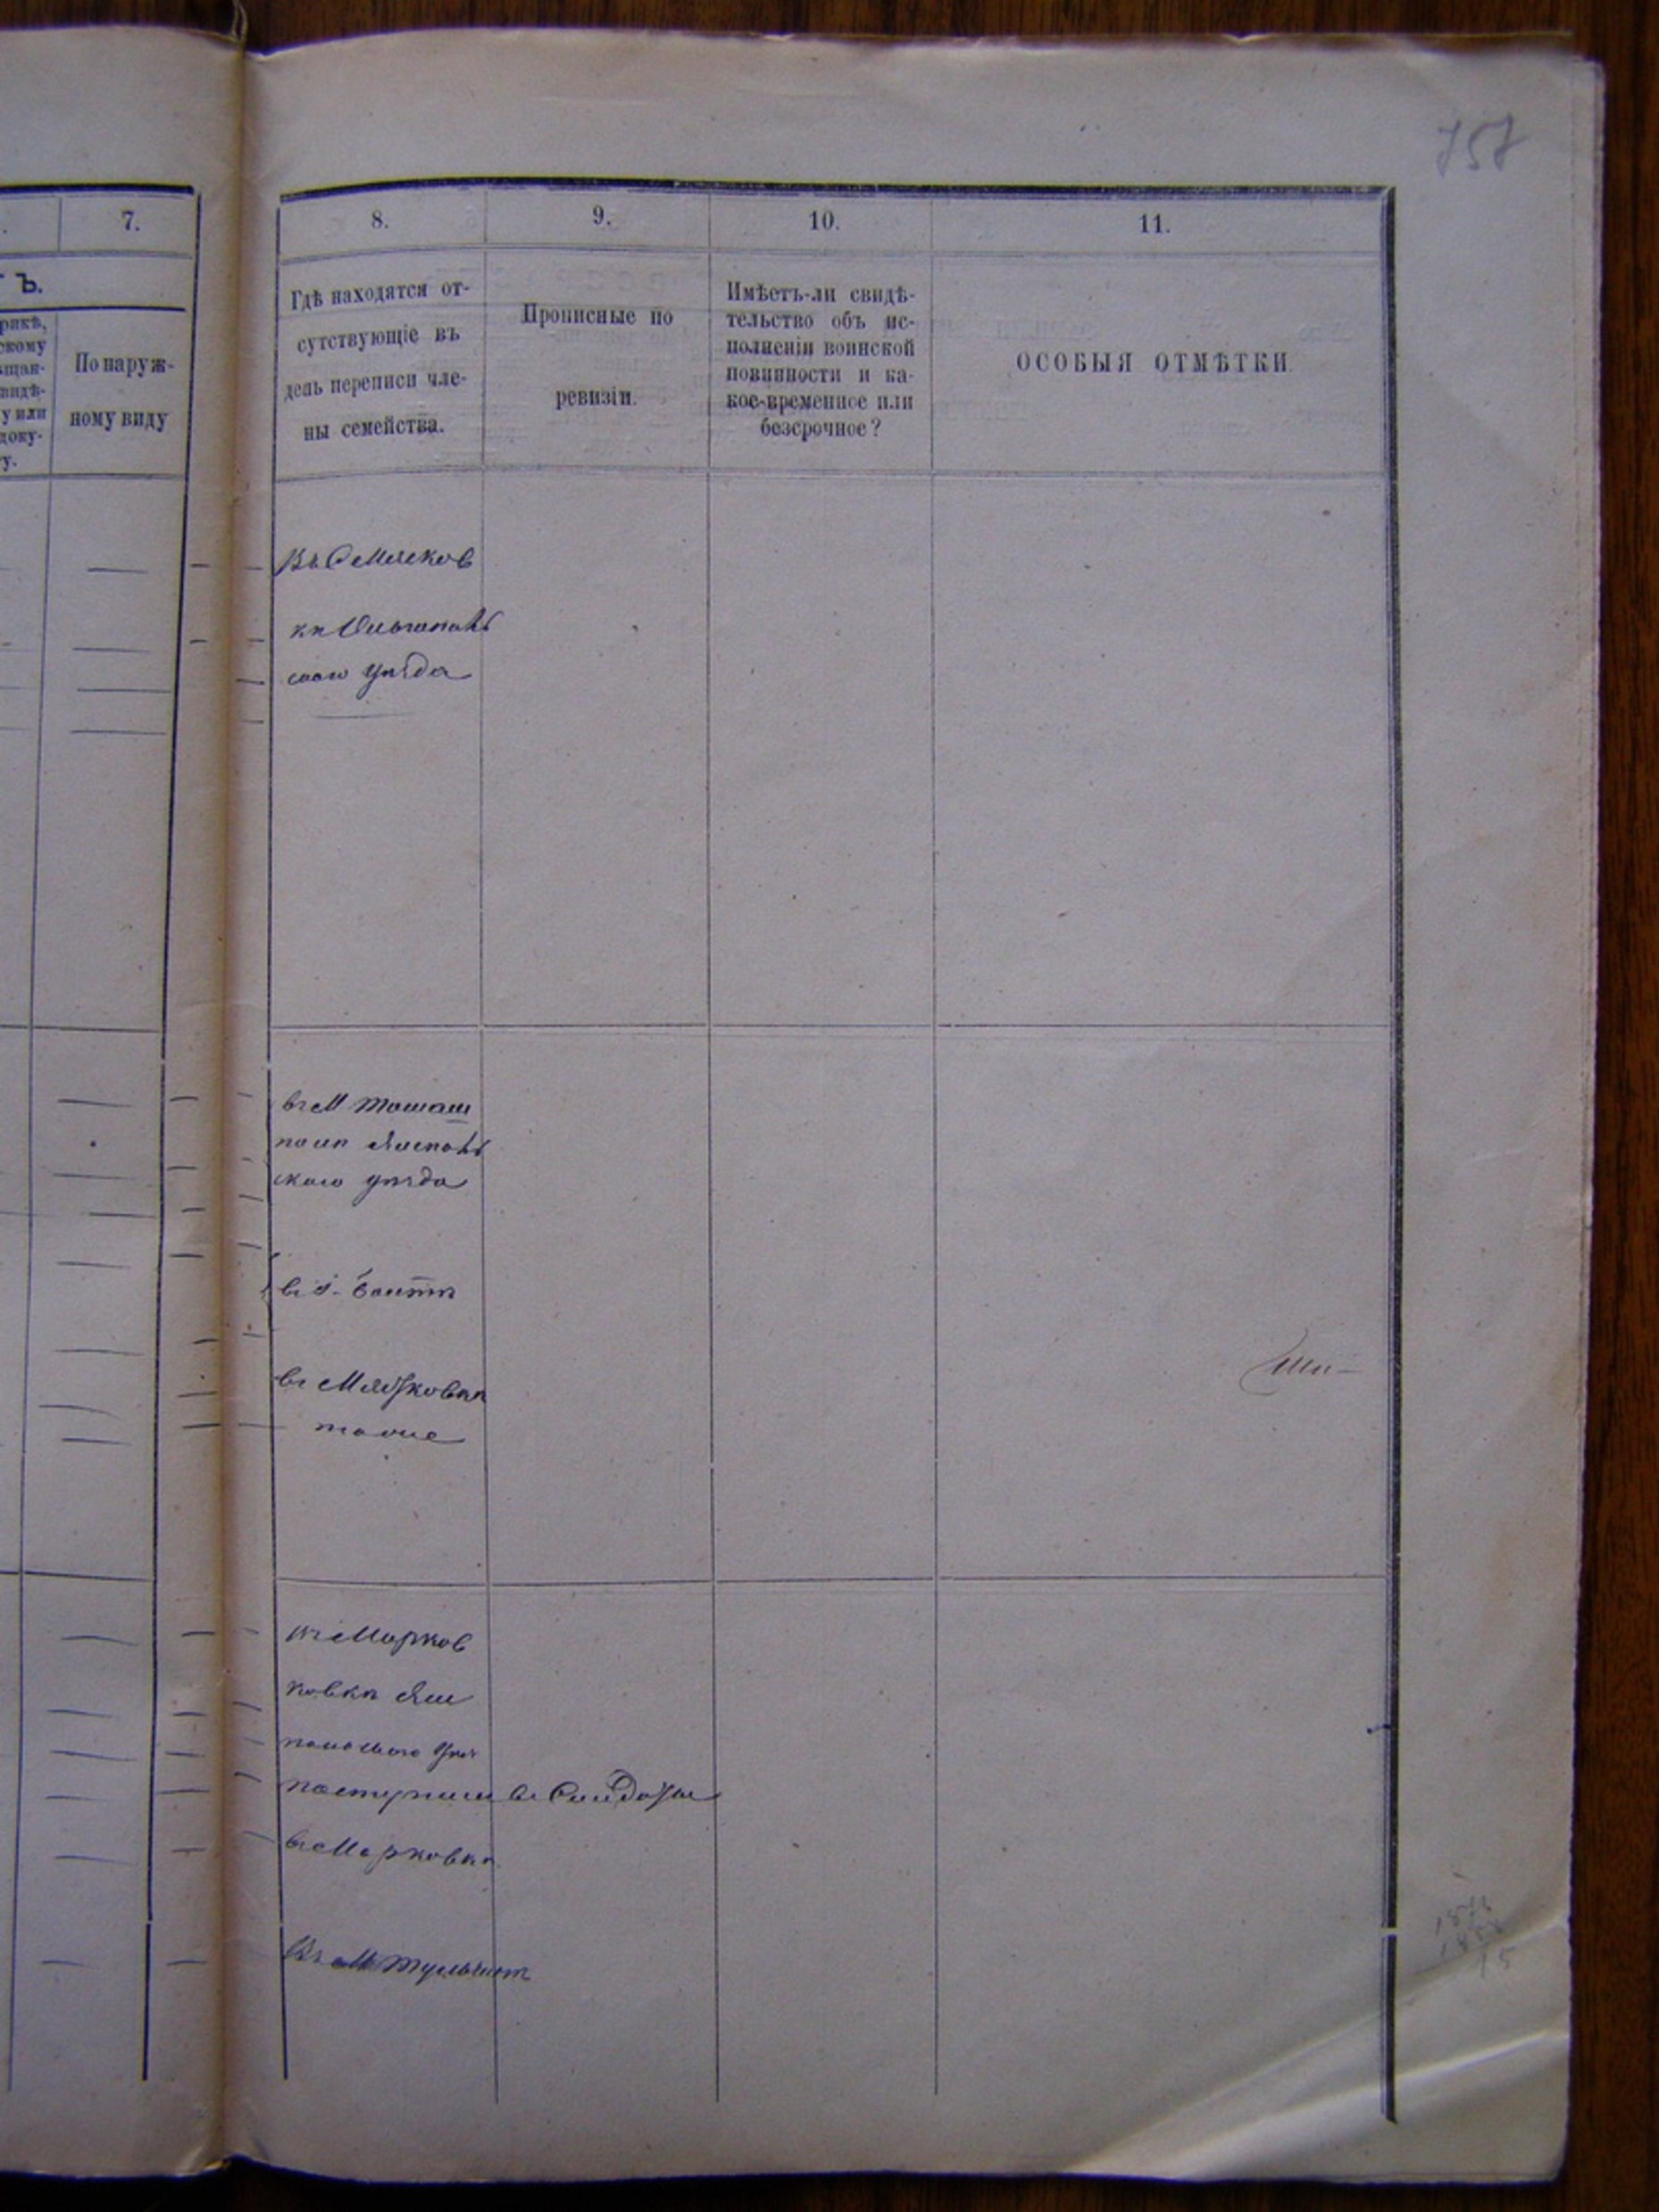 757
7.
8.
9.
10.
11.
Ъ.
рикѣ,
скому
ѣщан-
видѣ-
у или
доку-
у.
По наруж-
ному виду
Гдѣ находятся от-
сутствующіе въ
день переписи чле-
ны семейства.
Прописные по
ревизіи.
Имѣетъ-ли свидѣ-
тельство объ ис-
полненіи воинской
повинности и ка-
кое-временное или
безсрочное?
ОСОБЫЯ ОТМѢТКИ.
Въ С Мясков
кѣ Ольгопольс
скаго уѣзда
въ М Томаш
полѣ Ямпольс
скаго уѣзда
въ г. Балтѣ
въ Мясковкѣ
тоже
въ Марков
ковкѣ Ям
польскаго уѣз
поступили въ Солдаты
въ Марковкѣ
Въ М Тульчинѣ
15